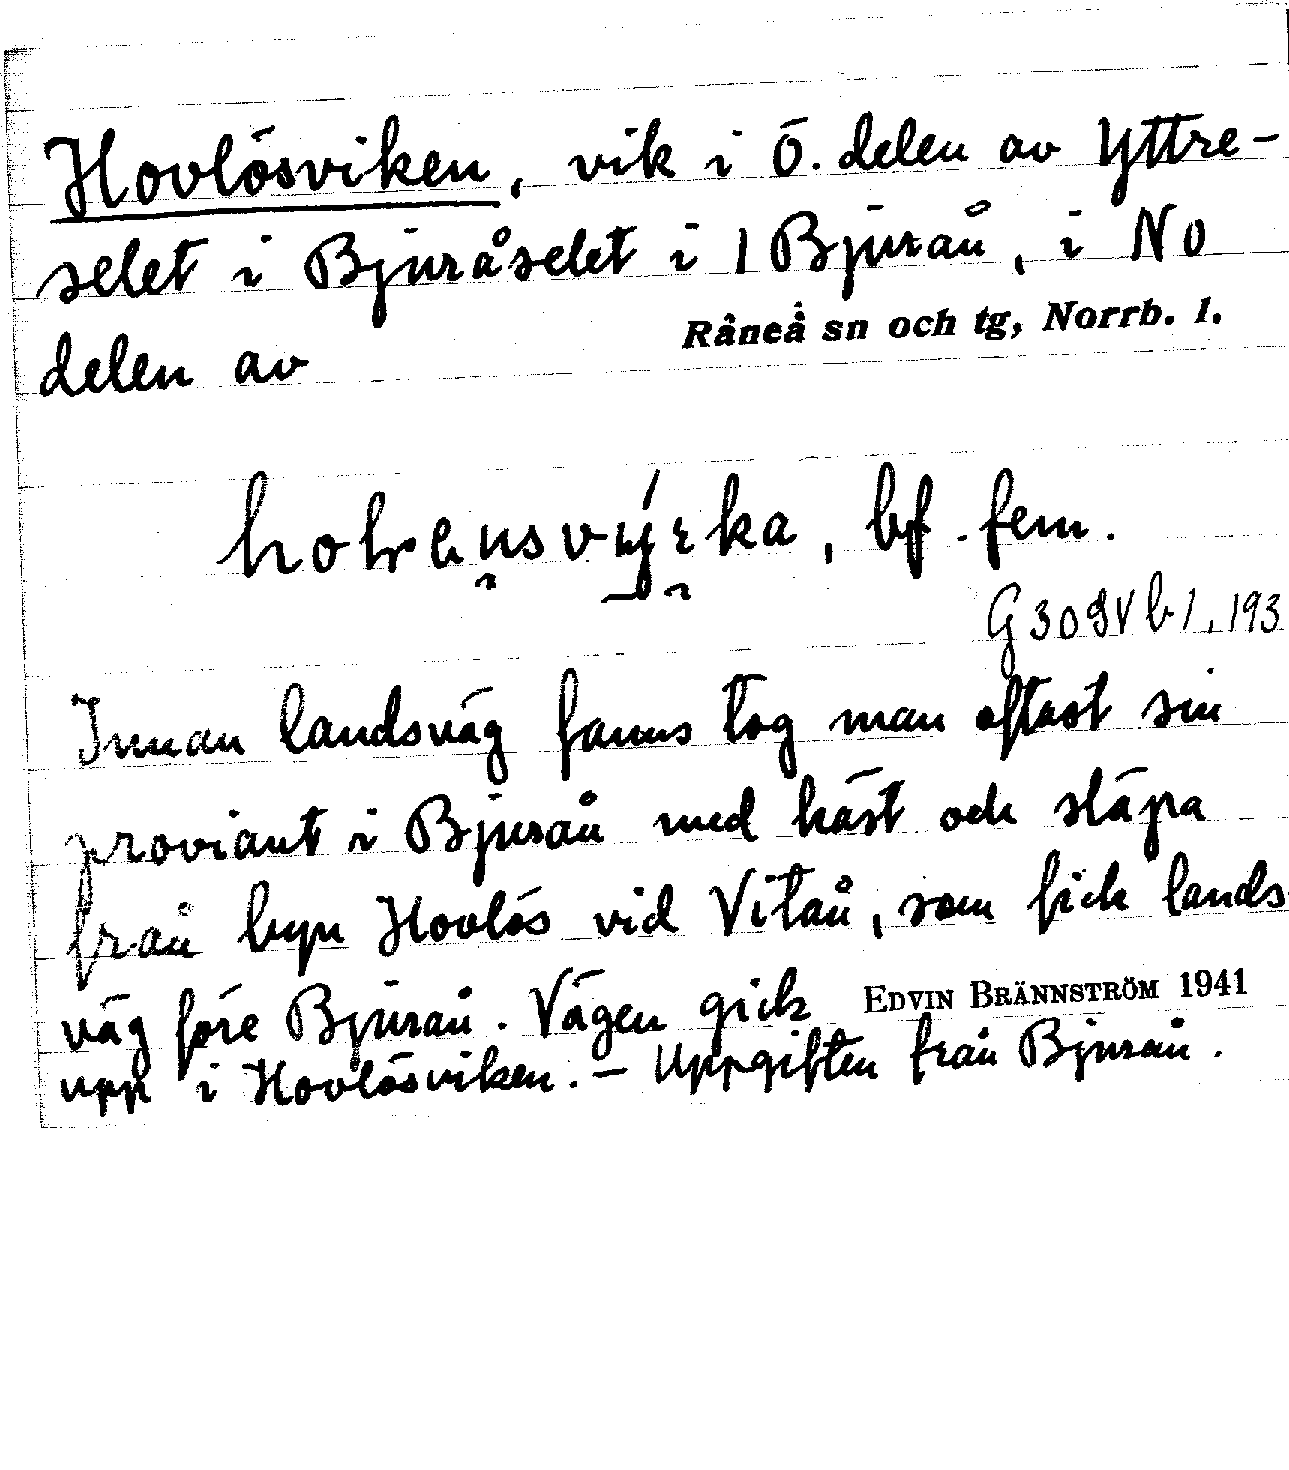 Hovlösviken, vik i ö. delen av Yttre-
selet i Bjuråselet i 1 Bjuraå, i NO
delen av Råneå sn och tg, Norrb. l.
bf. fem.
G 309 V b 1, 193
Innan landsväg fanns tog man oftast sin
proviant i Bjuraå med häst och släpa
från byn Hovlös vid Vitaå, som fick lands-
väg före Bjuraå. Vägen gick
EDVIN BRÄNNSTRÖM 1941
upp i Hovlösviken. – Uppgiften från Bjuraå.